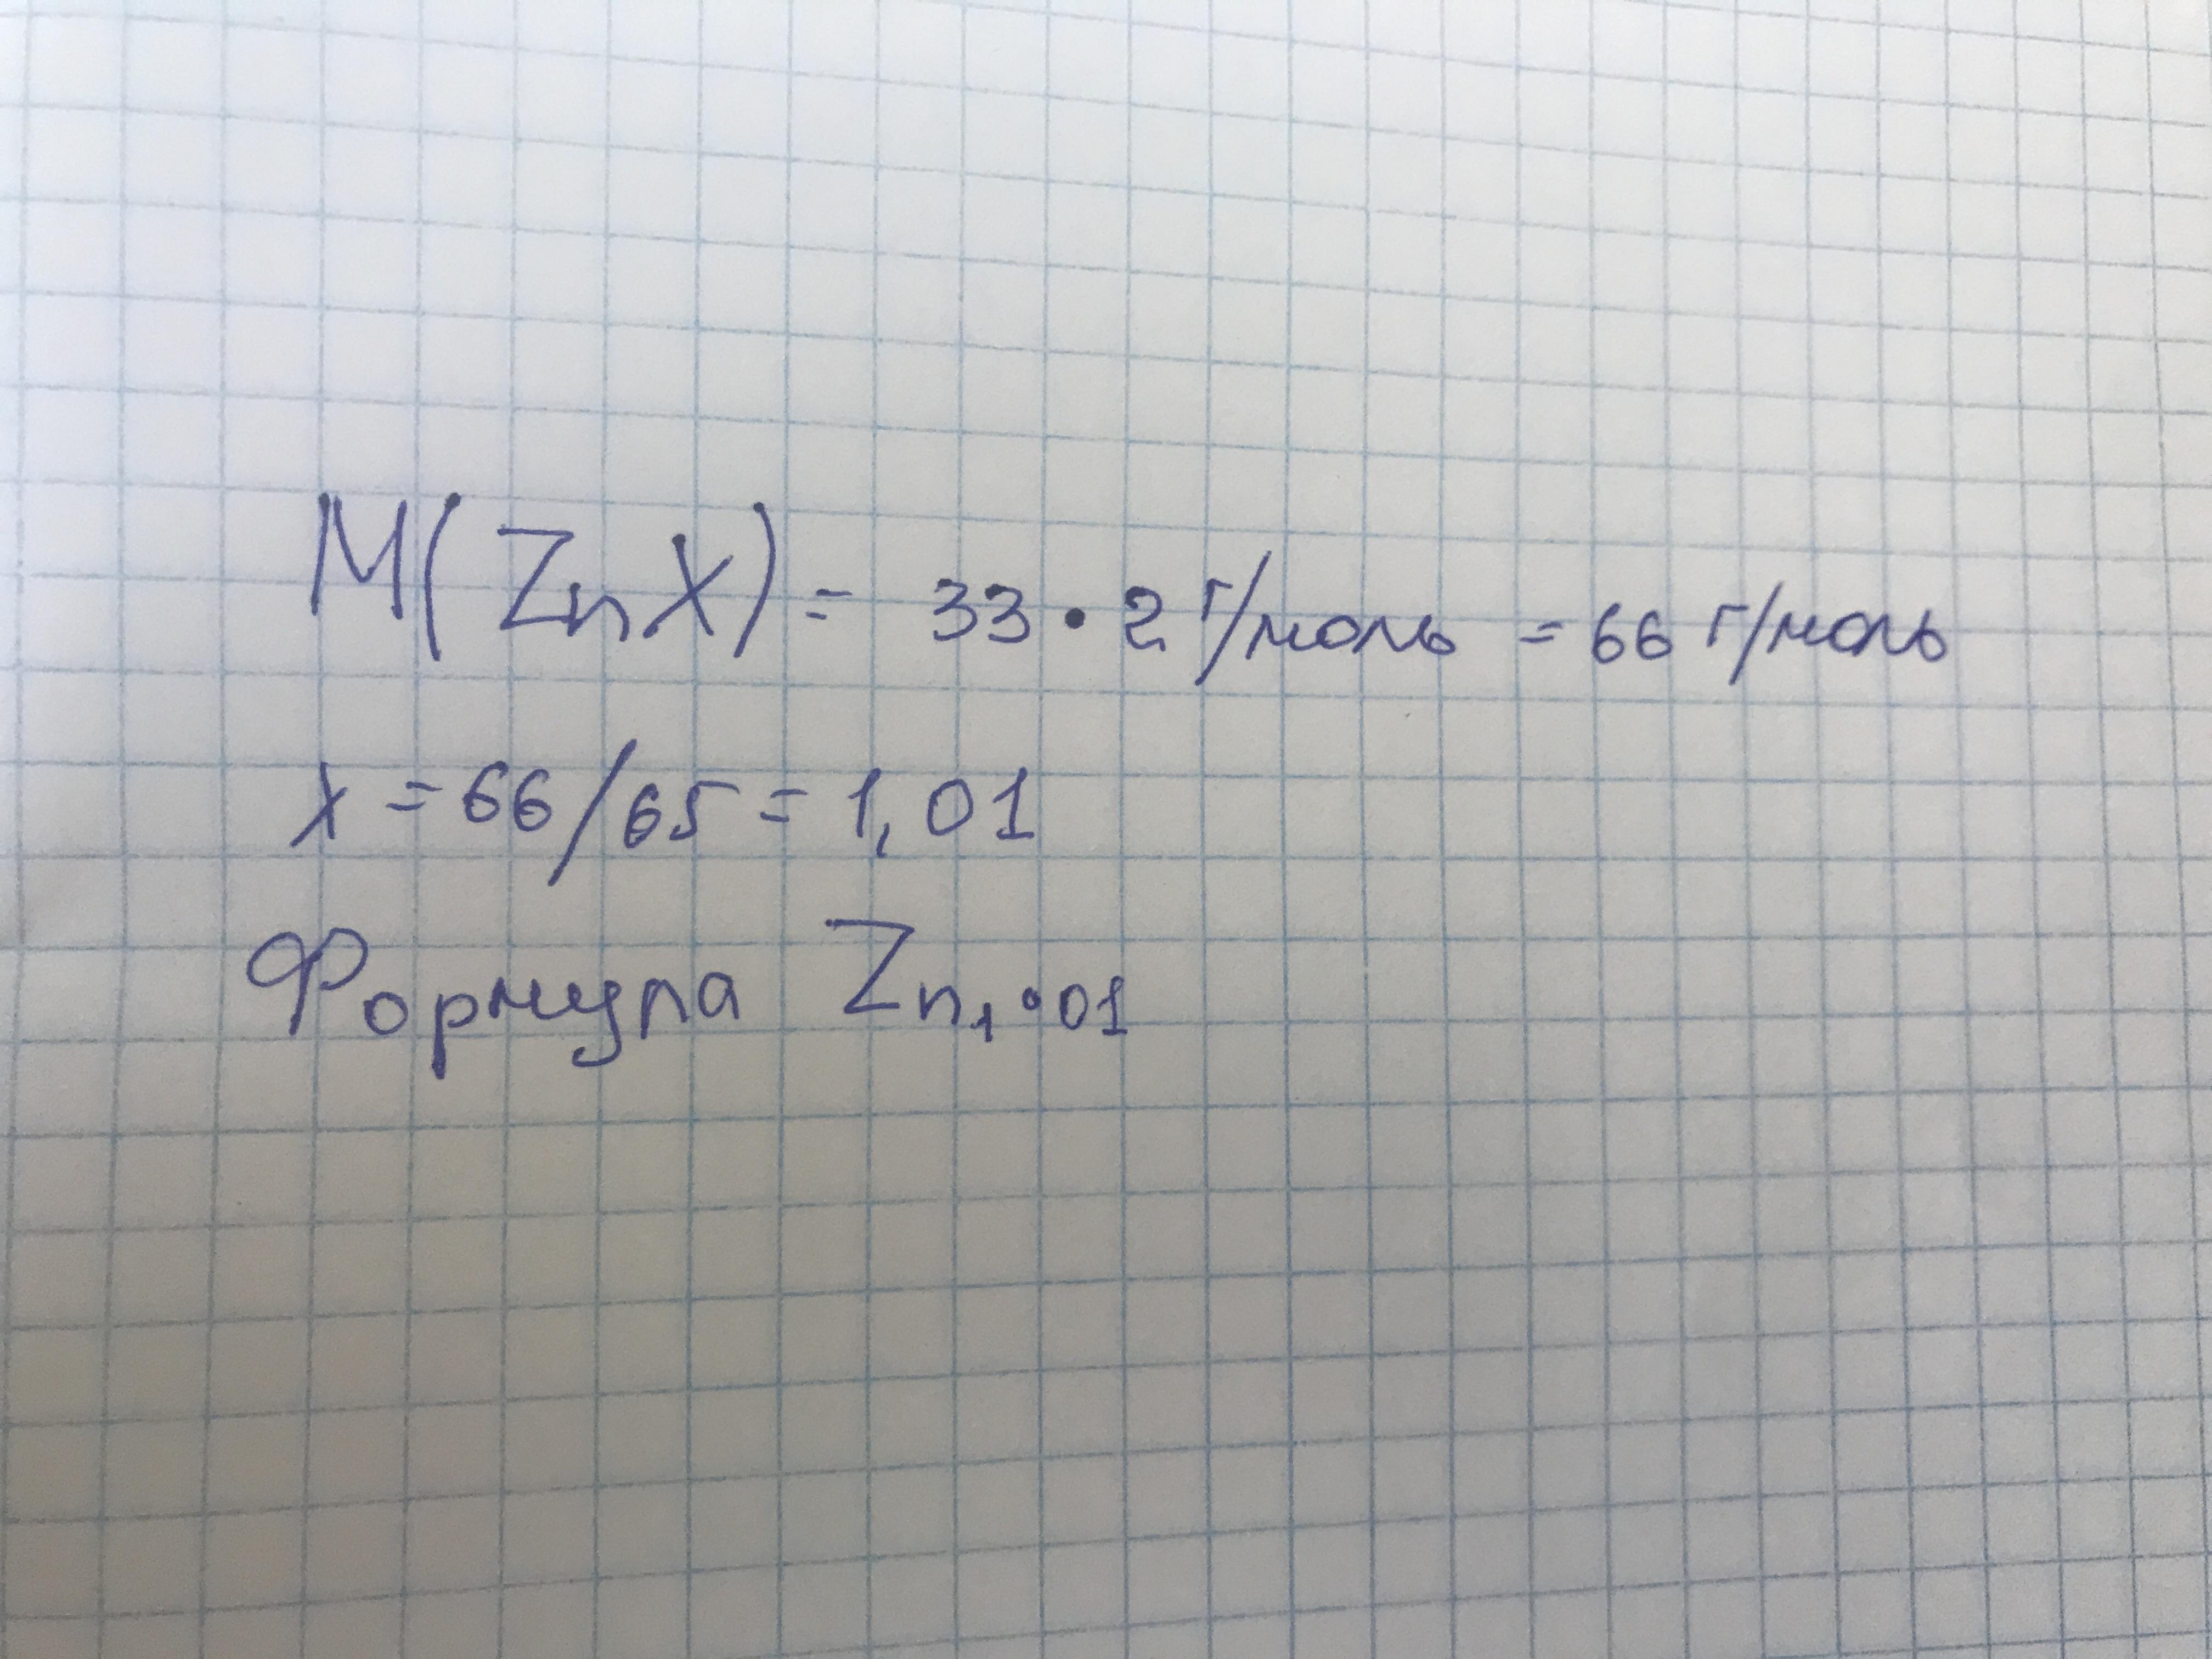 M(ZnX) = 33 • 2 г/моль = 66 г/моль
x = 66/65 = 1,01
Формула Zn₁•₀₁